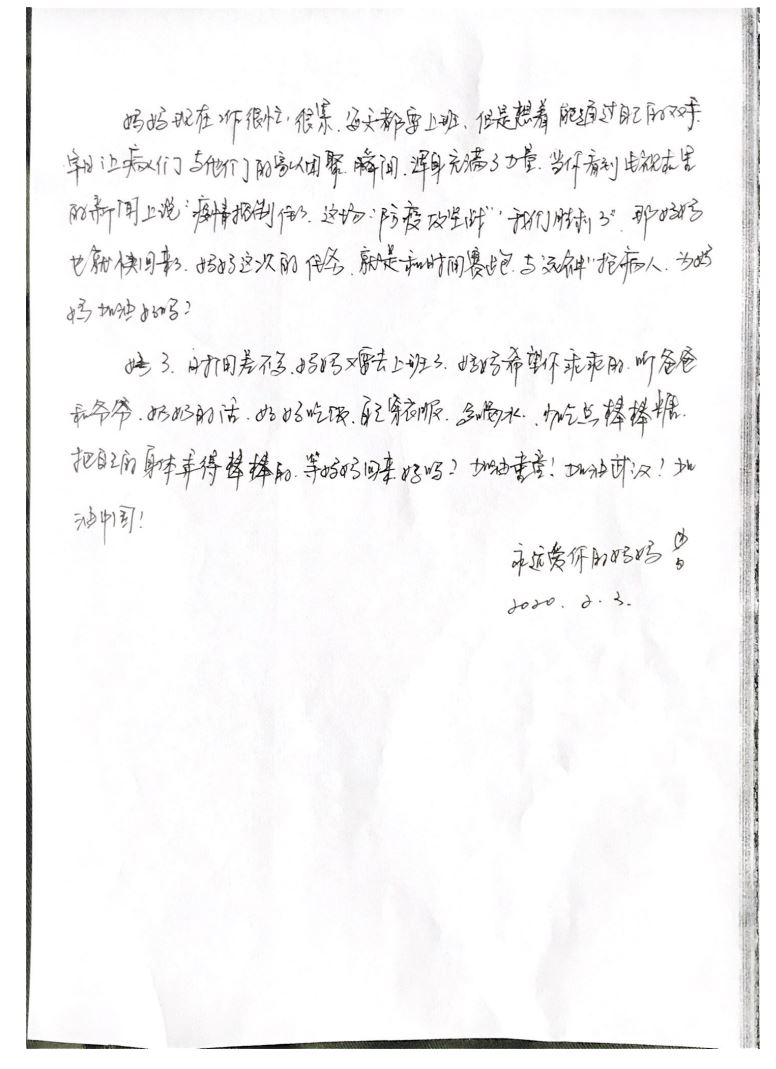 妈妈现在工作很忙，很累，每天都要上班，但是想着能通过自己的双手
早日让病人们与他们的家人团聚，瞬间，浑身充满了力量，当你看到电视
的新闻上说“疫情控制住了，这场“防疫攻坚战”，我们胜利了”，那妈妈
也就快回来了，妈妈这次的任务，就是和时间赛跑，与“死神”抢病人，为妈
妈加油好吗？
了，时间差不多，妈妈又要去上班了，妈妈希望你乖乖的，听爸爸
和爷爷、奶奶的话，好好吃饭，自己穿衣服，多喝水，少吃点棒棒糖，
把自己的身体弄得棒棒的，等妈妈回来好吗？加油！加油武汉！加
油中国！
永远爱你的妈妈
2020.2.3.